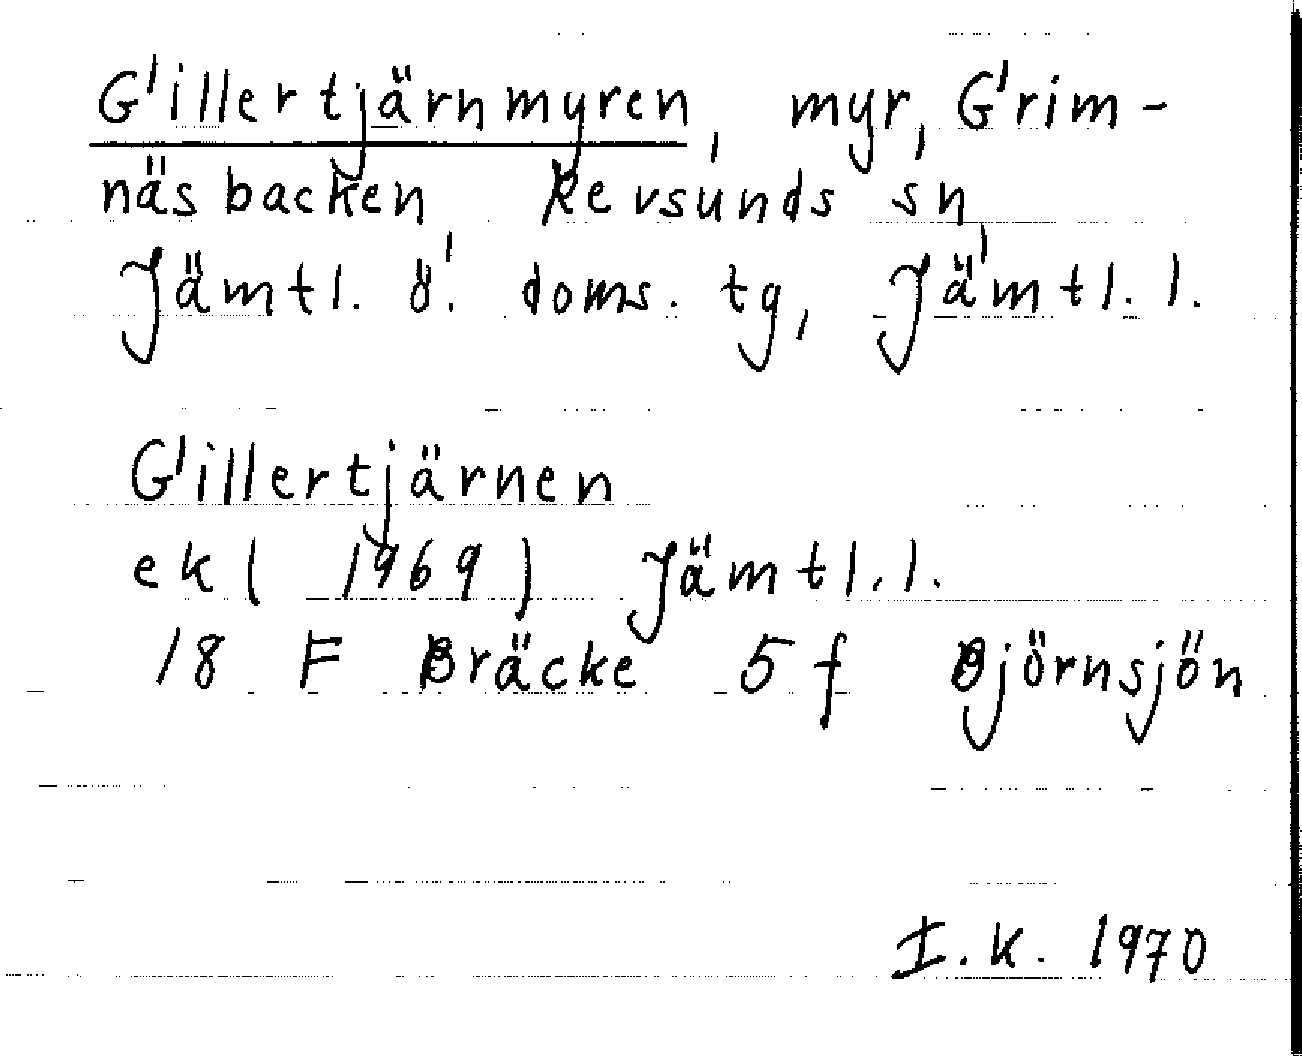 Gillertjärnmyren, myr, Grim-
näsbacken, Revsunds sn,
Jämtl. ö. doms. tg, Jämtl. l.
Gillertjärnen
ek ( 1969 ) Jämtl. l.
18 F Bräcke 5 f Björnsjön
I. K. 1970